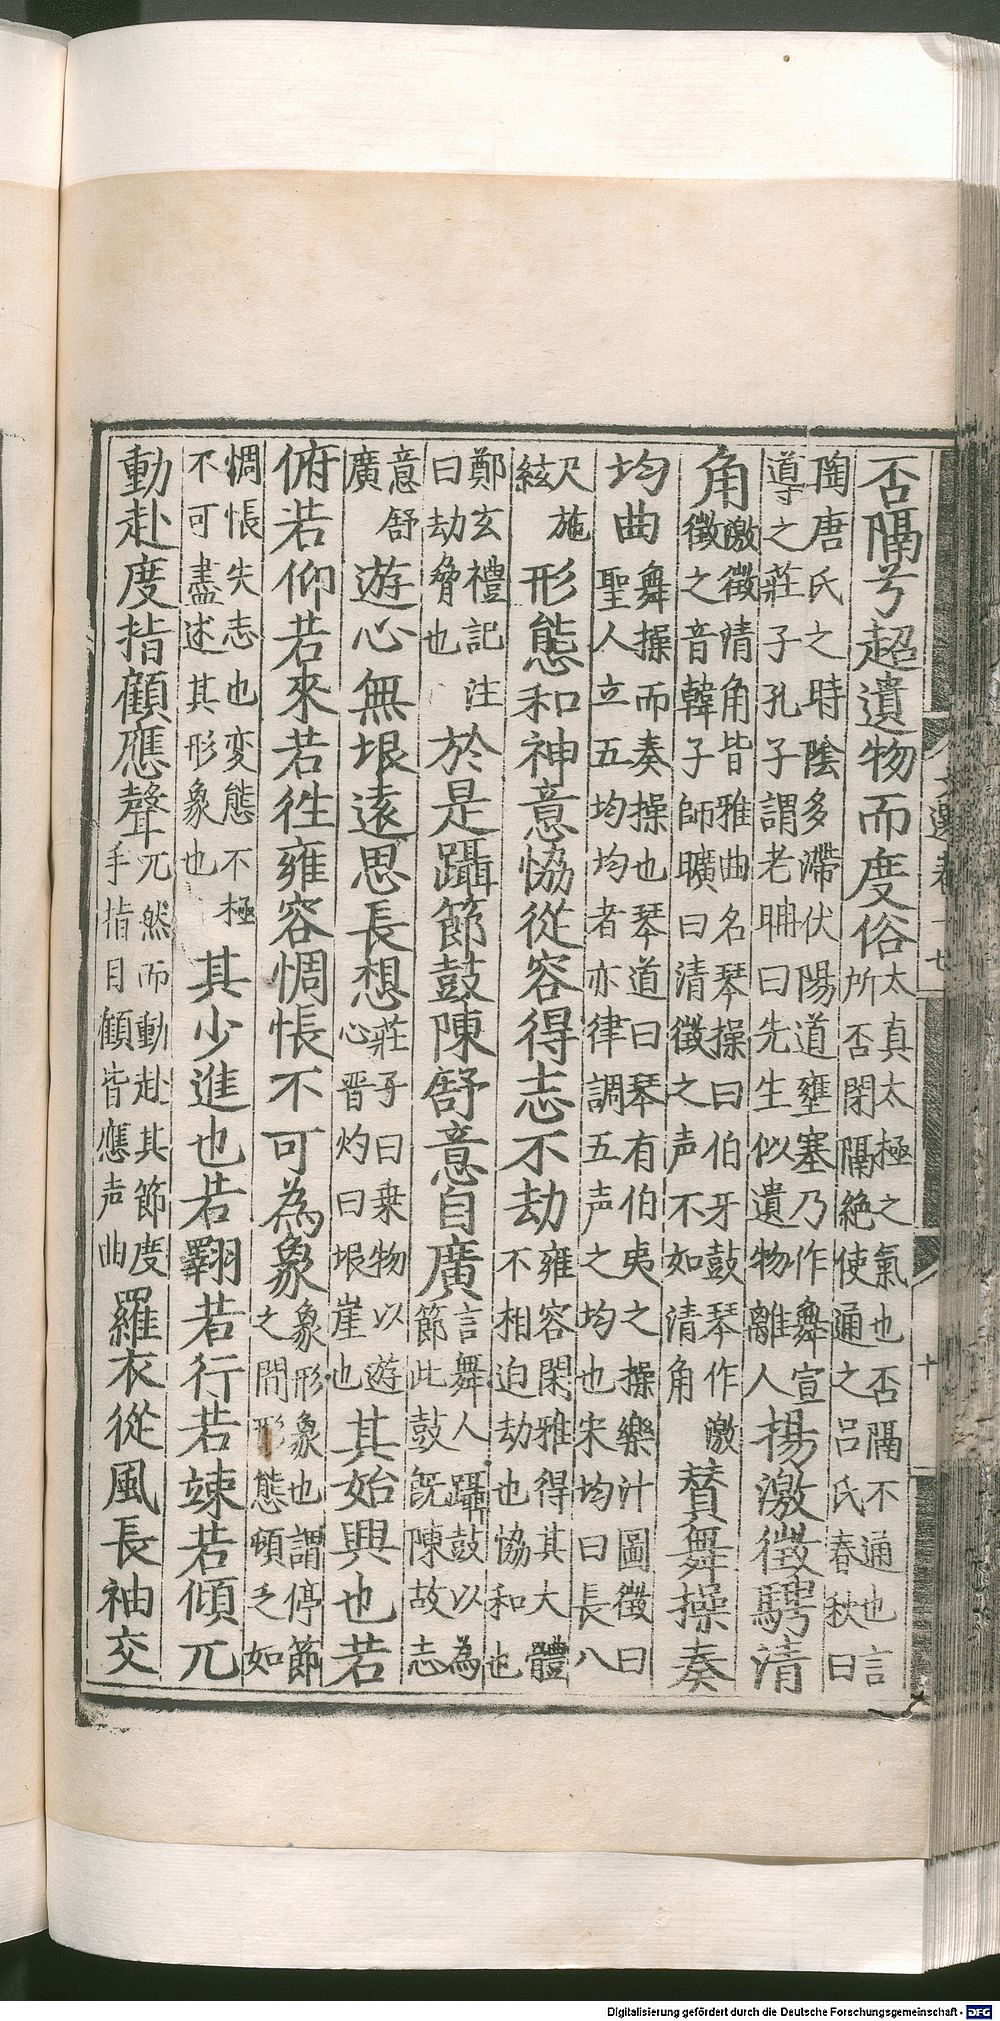 文選卷十七 十
否隔兮超遺物而度俗太真太極之氣也否隔不通也言所否閉隔絶使通之呂氏春秋曰
陶唐氏之時陰多滯伏陽道壅塞乃作舞宣導之莊子孔子謂老聃曰先生似遺物離人揚激徵騁清
角激徵清角皆雅曲名琴操曰伯牙鼓琴作激徵之音韓子師曠曰清徵之声不如清角賛舞操奏
均曲舞操而奏操也琴道曰琴有伯夷之操樂汁圖徵曰聖人立五均均者亦律調五声之均也宋均曰長八
尺施絃形態和神意恊從容得志不劫雍容閑雅得其大體不相迫劫也恊和也
鄭玄禮記注曰劫脅也於是躡節鼓陳舒意自廣言舞人躡鼓以為節此鼓既陳故志
意舒廣遊心無垠遠思長想莊子曰乗物以遊心晋灼曰垠崖也其始興也若
俯若仰若來若徃雍容惆悵不可為象象形象也謂停節之間形態頓乏如
惆悵失志也変態不極不可盡述其形象也其少進也若翾若行若竦若傾兀
動赴度指顧應聲兀然而動赴其節度手指目顧皆應声曲羅衣從風長袖交
Digitalisierung gefördert durch die Deutsche Forschungsgemeinschaft - DFG